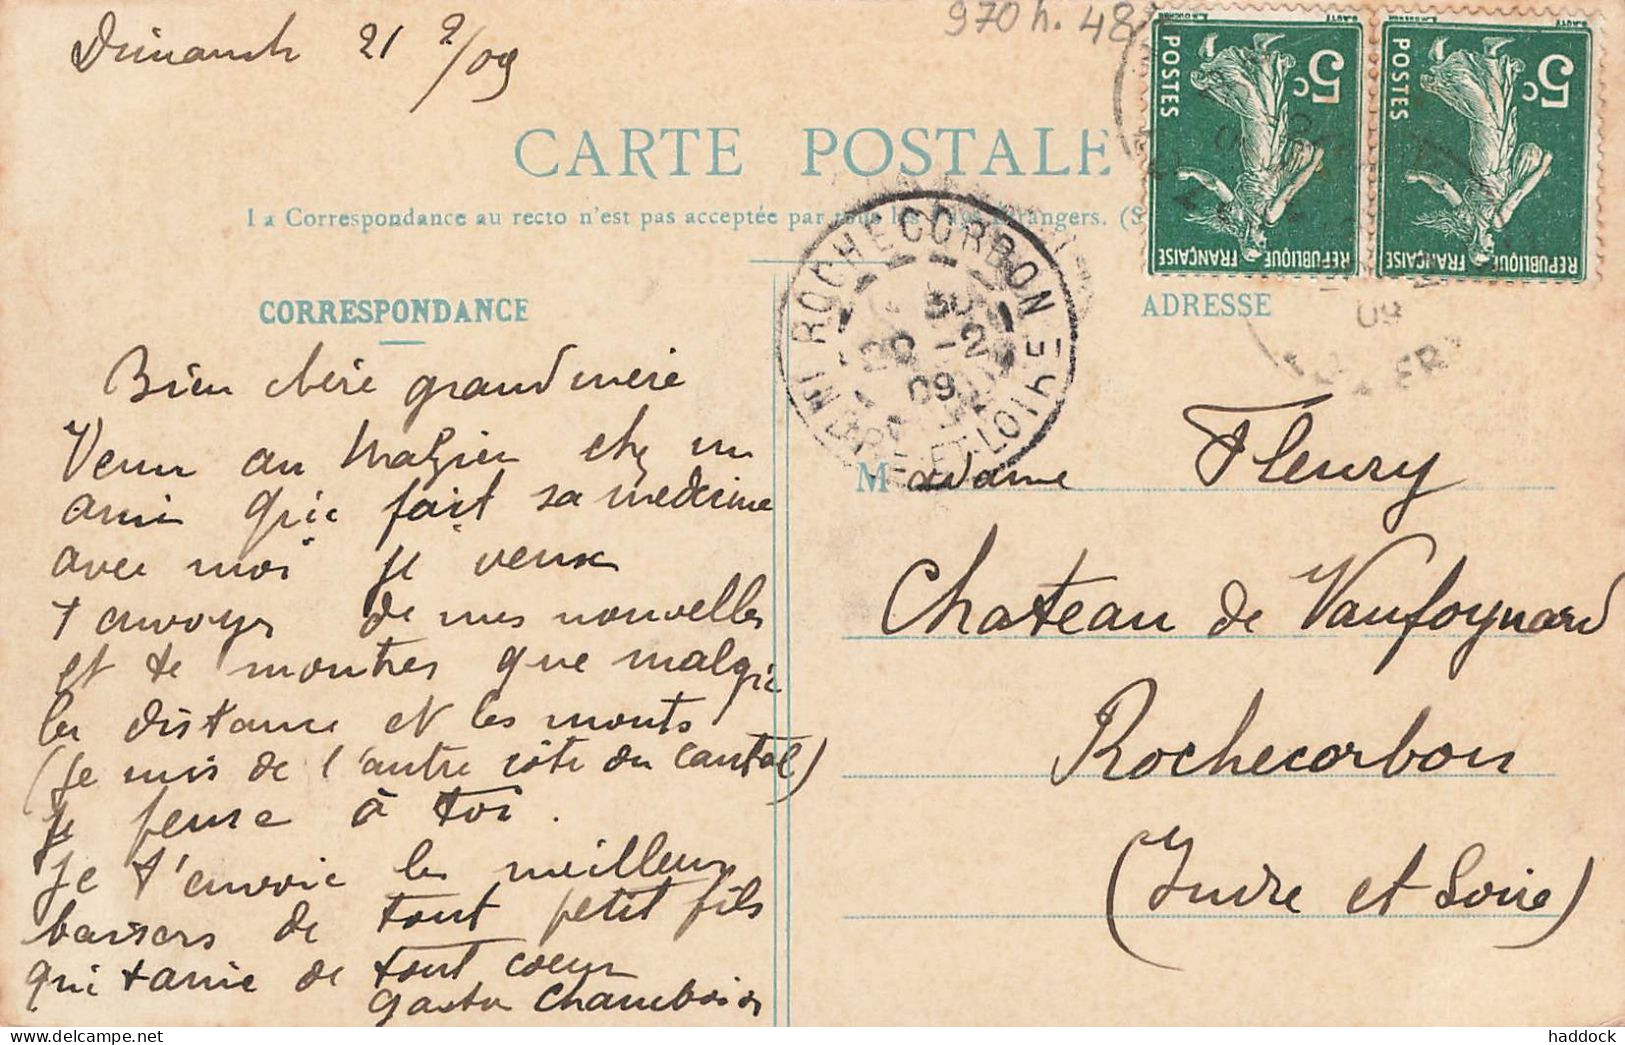 970 h. 48
Dimanch 21 2/09
CARTE POSTALE
La Correspondance au recto n'est pas acceptée par tous les pays étrangers. (S
ROCHECORBON
INDRE-ET-LOIRE
09
5c
POSTES
REPUBLIQUE FRANÇAISE
5c
POSTES
REPUBLIQUE FRANÇAISE
09
CORRESPONDANCE
ADRESSE
Bien chère grand mère
Venu au chez un
ami qui fait sa medecine
avec moi je veux
t envoyer de mes nouvelles
et te montrer que malgré
la distance et les monts
(je suis de l'autre côté du cantal)
je pense à toi.
Je t'envoie les meilleurs
baisers de tout petit fils
qui t'aime de tout coeur
Gaston
Madame Fleury
Chateau de Vaufoynard
Rochecorbon
(Indre et Loire)
haddock